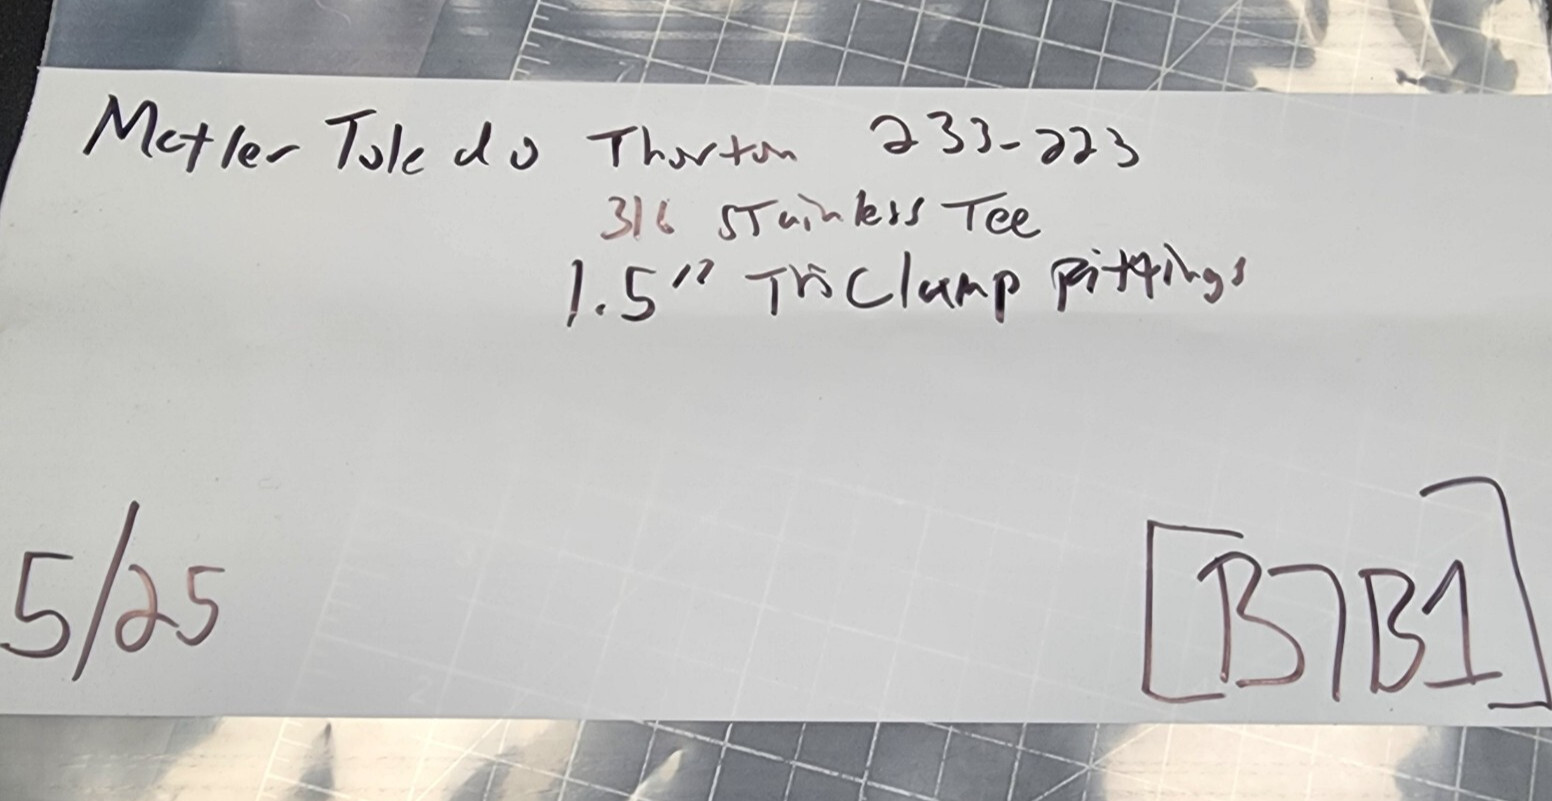 Metler Toledo Thorton 233-223
316 Stainless Tee
1.5" Tri Clamp Fittings
5/25
[B7B1]